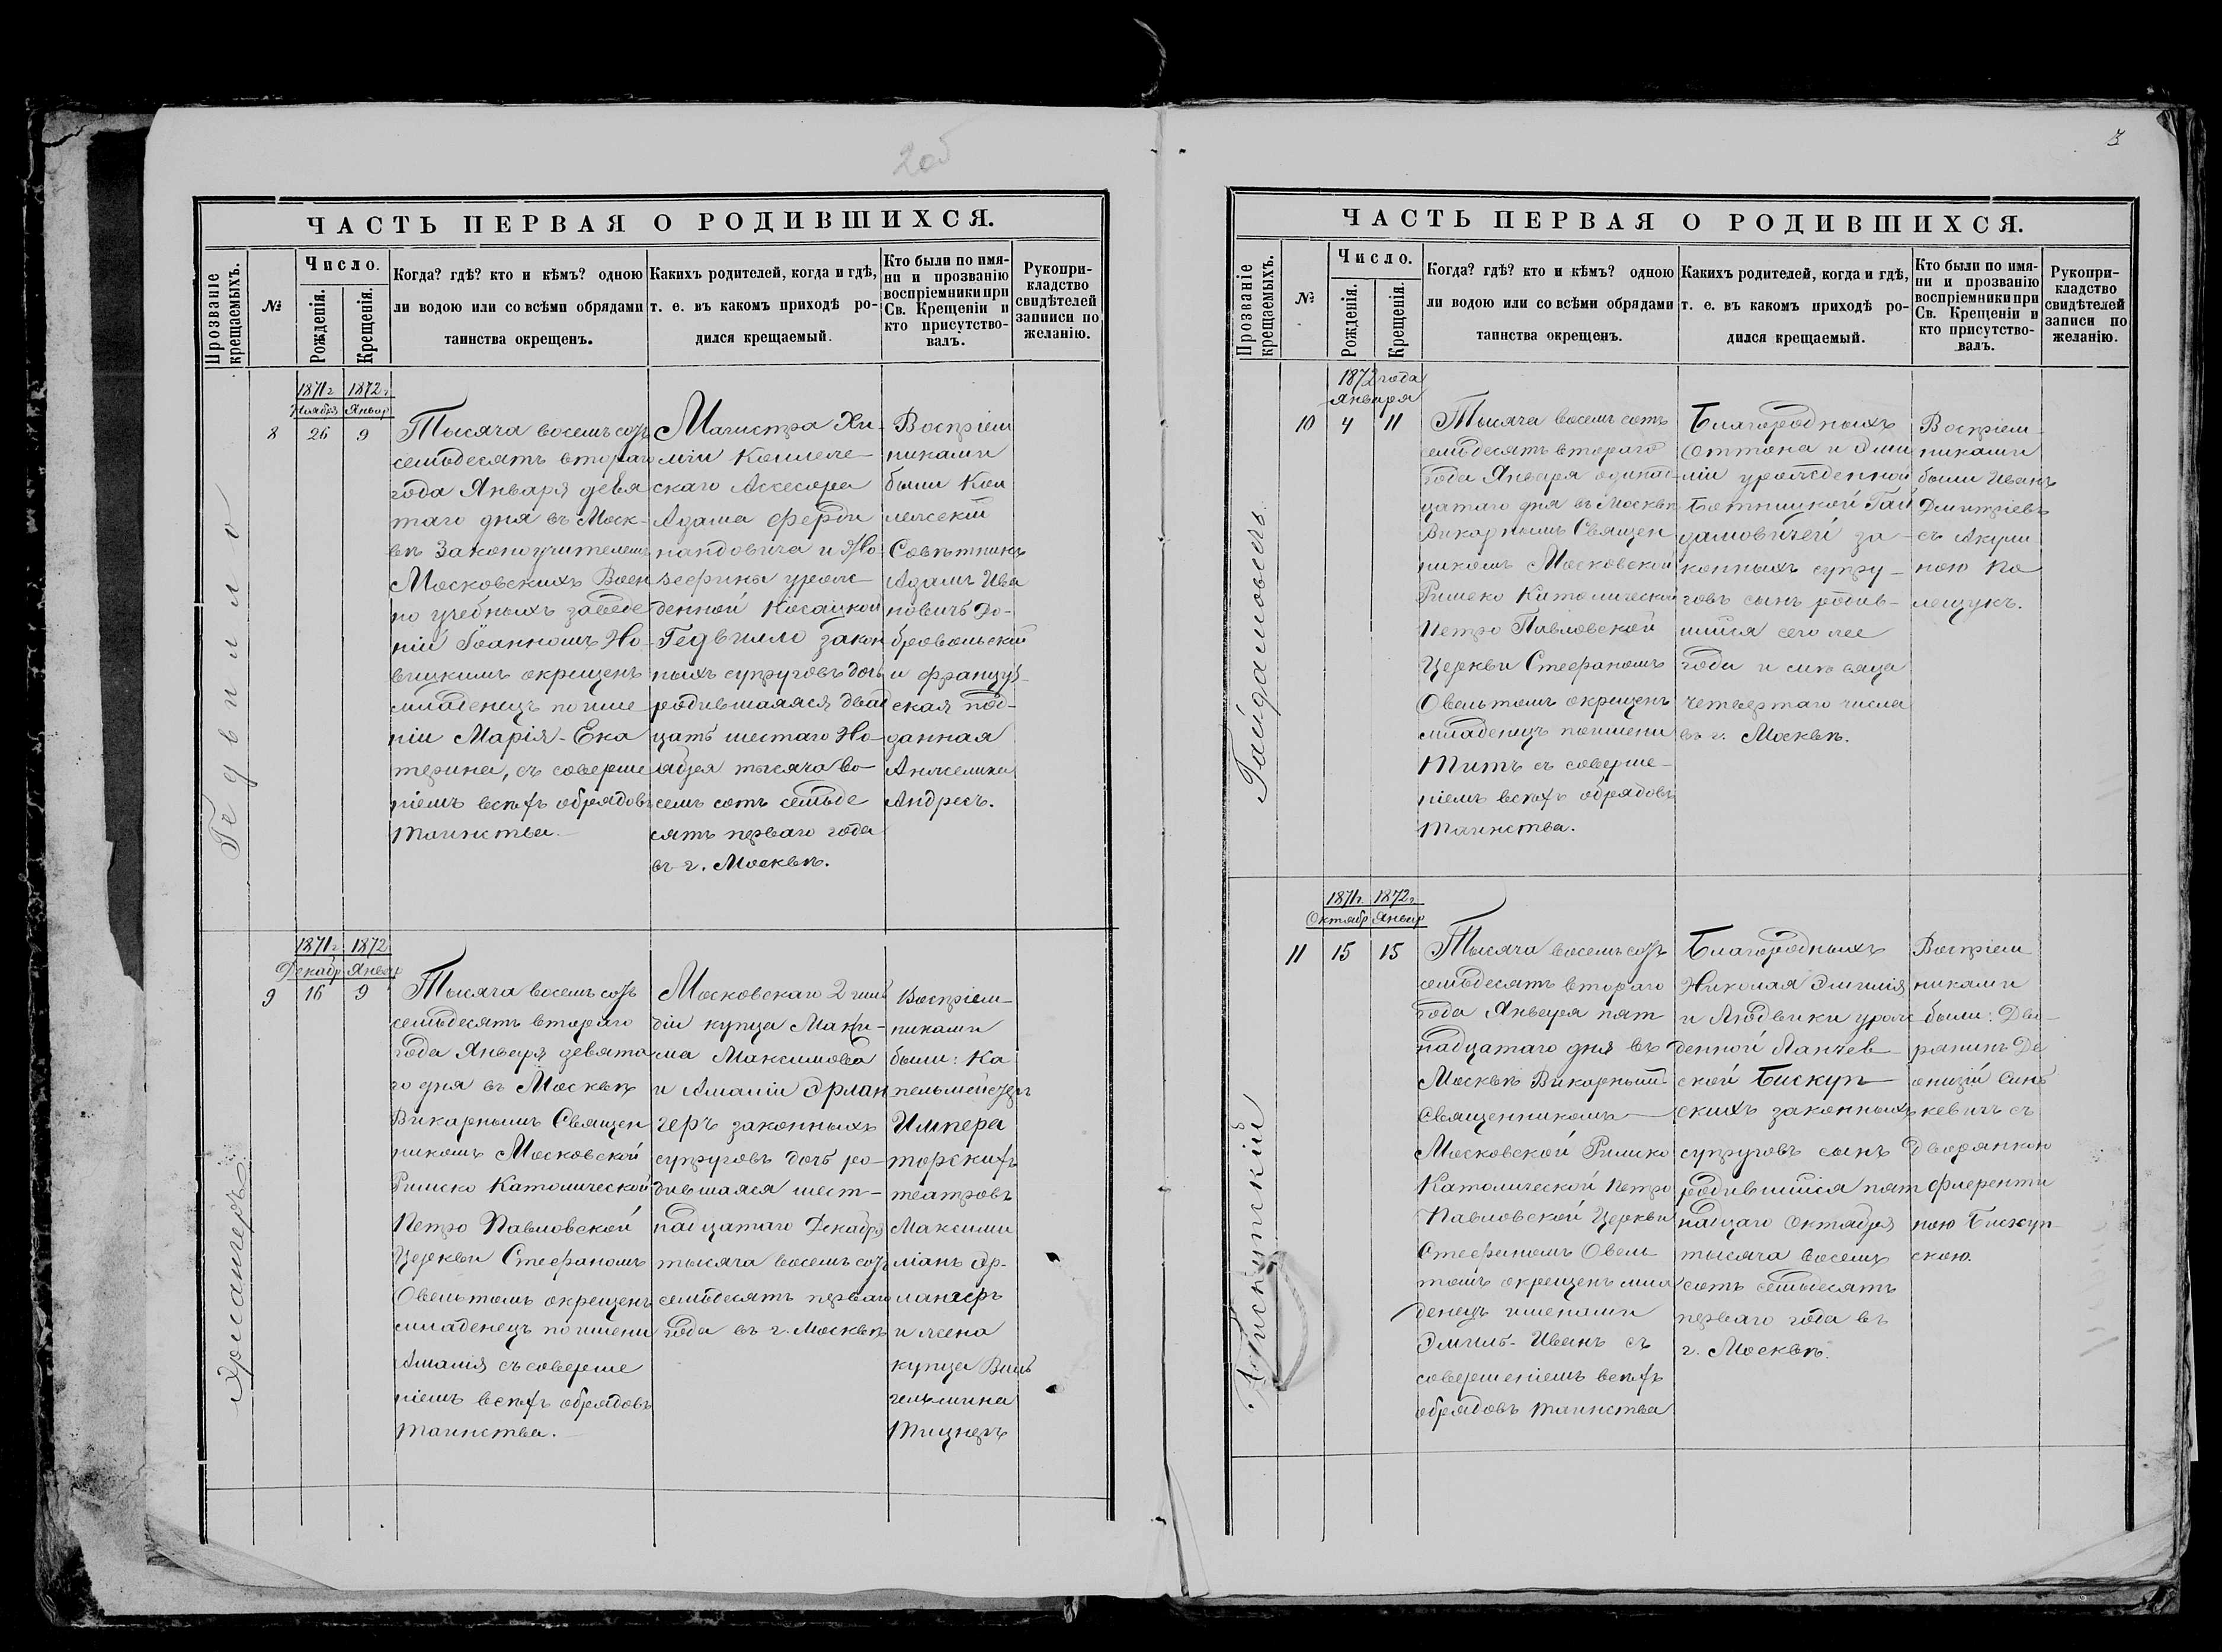 2 об
ЧАСТЬ ПЕРВАЯ О РОДИВШИХСЯ.
Прозваніе крещаемыхъ.
№
Число.
Рожденія.
Крещенія.
Когда? гдѣ? кто и кѣмъ? одною
ли водою или со всѣми обрядами
таинства окрещенъ.
Какихъ родителей, когда и гдѣ,
т. е. въ какомъ приходѣ ро-
дился крещаемый.
Кто были по имя-
ни и прозванію
воспріемники при
Св. Крещеніи и
кто присутство-
валъ.
Рукопри-
кладство
свидѣтелей
записи по
желанію.
Гедвилло
1871 г 1872 г
Ноября Январ
8 26 9
Тысяча восемьсотъ
семьдесятъ втораго
года Января девя
таго дня въ Моск-
вѣ Законоучителемъ
Московскихъ Воен
но учебныхъ заведе
ній Іоанномъ Но-
вицкимъ окрещенъ
младенецъ по име
ніи Марія-Ека
терина, съ соверше
ніемъ всѣхъ обрядовъ
таинства.
Магистра Хи-
міи Коллеж-
скаго Ассесора
Адама Ферди
нандовича и Іо
зефины урож-
денной Косацкой
Гедвилло закон
ныхъ супруговъ дочь
родившаяся двад
цать шестаго Но-
ября тысяча во
семь сотъ семьде
сятъ перваго года
въ г. Москвѣ.
Воспріем
никами
были Кол
лежскій
Совѣтникъ
Адамъ Ива
новичъ До-
бровольскій
и француз-
ская под-
данная
Анжелика
Андресъ.
Эрлангеръ
1871 г 1872
Декабр Январ
9 16 9
Тысяча восемьсотъ
семьдесятъ втораго
года Января девята
го дня въ Москвѣ
Викарнымъ Священ
никомъ Московской
Римско Католической
Петро Павловской
Церкви Стефаномъ
Овельтомъ окрещенъ
младенецъ по имени
Амалія съ соверше
ніемъ всѣхъ обрядовъ
таинства.
Московскаго 2 гиль
діи купца Макси-
ма Максимова
и Амаліи Эрлан
геръ законныхъ
супруговъ дочь ро-
дившаяся шест-
надцатаго Декабря
тысяча восемьсотъ
семьдесятъ перваго
года въ г. Москвѣ
Воспріем-
никами
были: Ка
пельмейстеръ
Импера
торскихъ
театровъ
Максими
ліанъ Эр-
лангеръ
и жена
купца Виль
гельмина
Тицнеръ
3
ЧАСТЬ ПЕРВАЯ О РОДИВШИХСЯ.
Прозваніе крещаемыхъ.
№
Число.
Рожденія.
Крещенія.
Когда? гдѣ? кто и кѣмъ? одною
ли водою или со всѣми обрядами
таинства окрещенъ.
Какихъ родителей, когда и гдѣ,
т. е. въ какомъ приходѣ ро-
дился крещаемый.
Кто были по имя-
ни и прозванію
воспріемники при
Св. Крещеніи и
кто присутство-
валъ.
Рукопри-
кладство
свидѣтелей
записи по
желанію.
Гайдамовичъ
1872 года
Января
10 4 11
Тысяча восемь сотъ
семьдесятъ втораго
года Января одинад
цатаго дня въ Москвѣ
Викарнымъ Священ
никомъ Московской
Римско Католической
Петро Павловской
Церкви Стефаномъ
Овельтомъ окрещенъ
младенецъ по имени
Титъ съ соверше-
ніемъ всѣхъ обрядовъ
таинства.
Благородныхъ
Оттона и Эми
ліи урожденной
Гай
дамовичей за-
конныхъ супру-
говъ сынъ родив-
шійся сего же
года и мѣсяца
четвертаго числа
въ г. Москвѣ.
Воспріем-
никами
были Иванъ
Дмитріевъ
съ Акули
ною По
лещукъ.
Бискупскій
1871 г. 1872 г
Октябр Январ
11 15 15
Тысяча восемьсотъ
семьдесятъ втораго
года Января пят
надцатаго дня въ
Москвѣ Викарнымъ
Священникомъ
Московской Римско
Католической Петро
Павловской Церкви
Стефаномъ Овель
томъ окрещенъ мла
денецъ именами
Эмиль-Иванъ съ
совершеніемъ всѣхъ
обрядовъ таинства
Благородныхъ
Николая Эмилія
и Людвики урож-
денной Лангев-
ской Бискуп-
скихъ законныхъ
супруговъ сынъ
родившійся пят
надцаго Октября
тысяча восемь
сотъ семьдесятъ
перваго года въ
г. Москвѣ.
Воспріем
никами
были: Дво-
рянинъ Де
онизій Синь
кевичъ съ
Дворянкою
Флоренти
ною Бискуп-
скою.